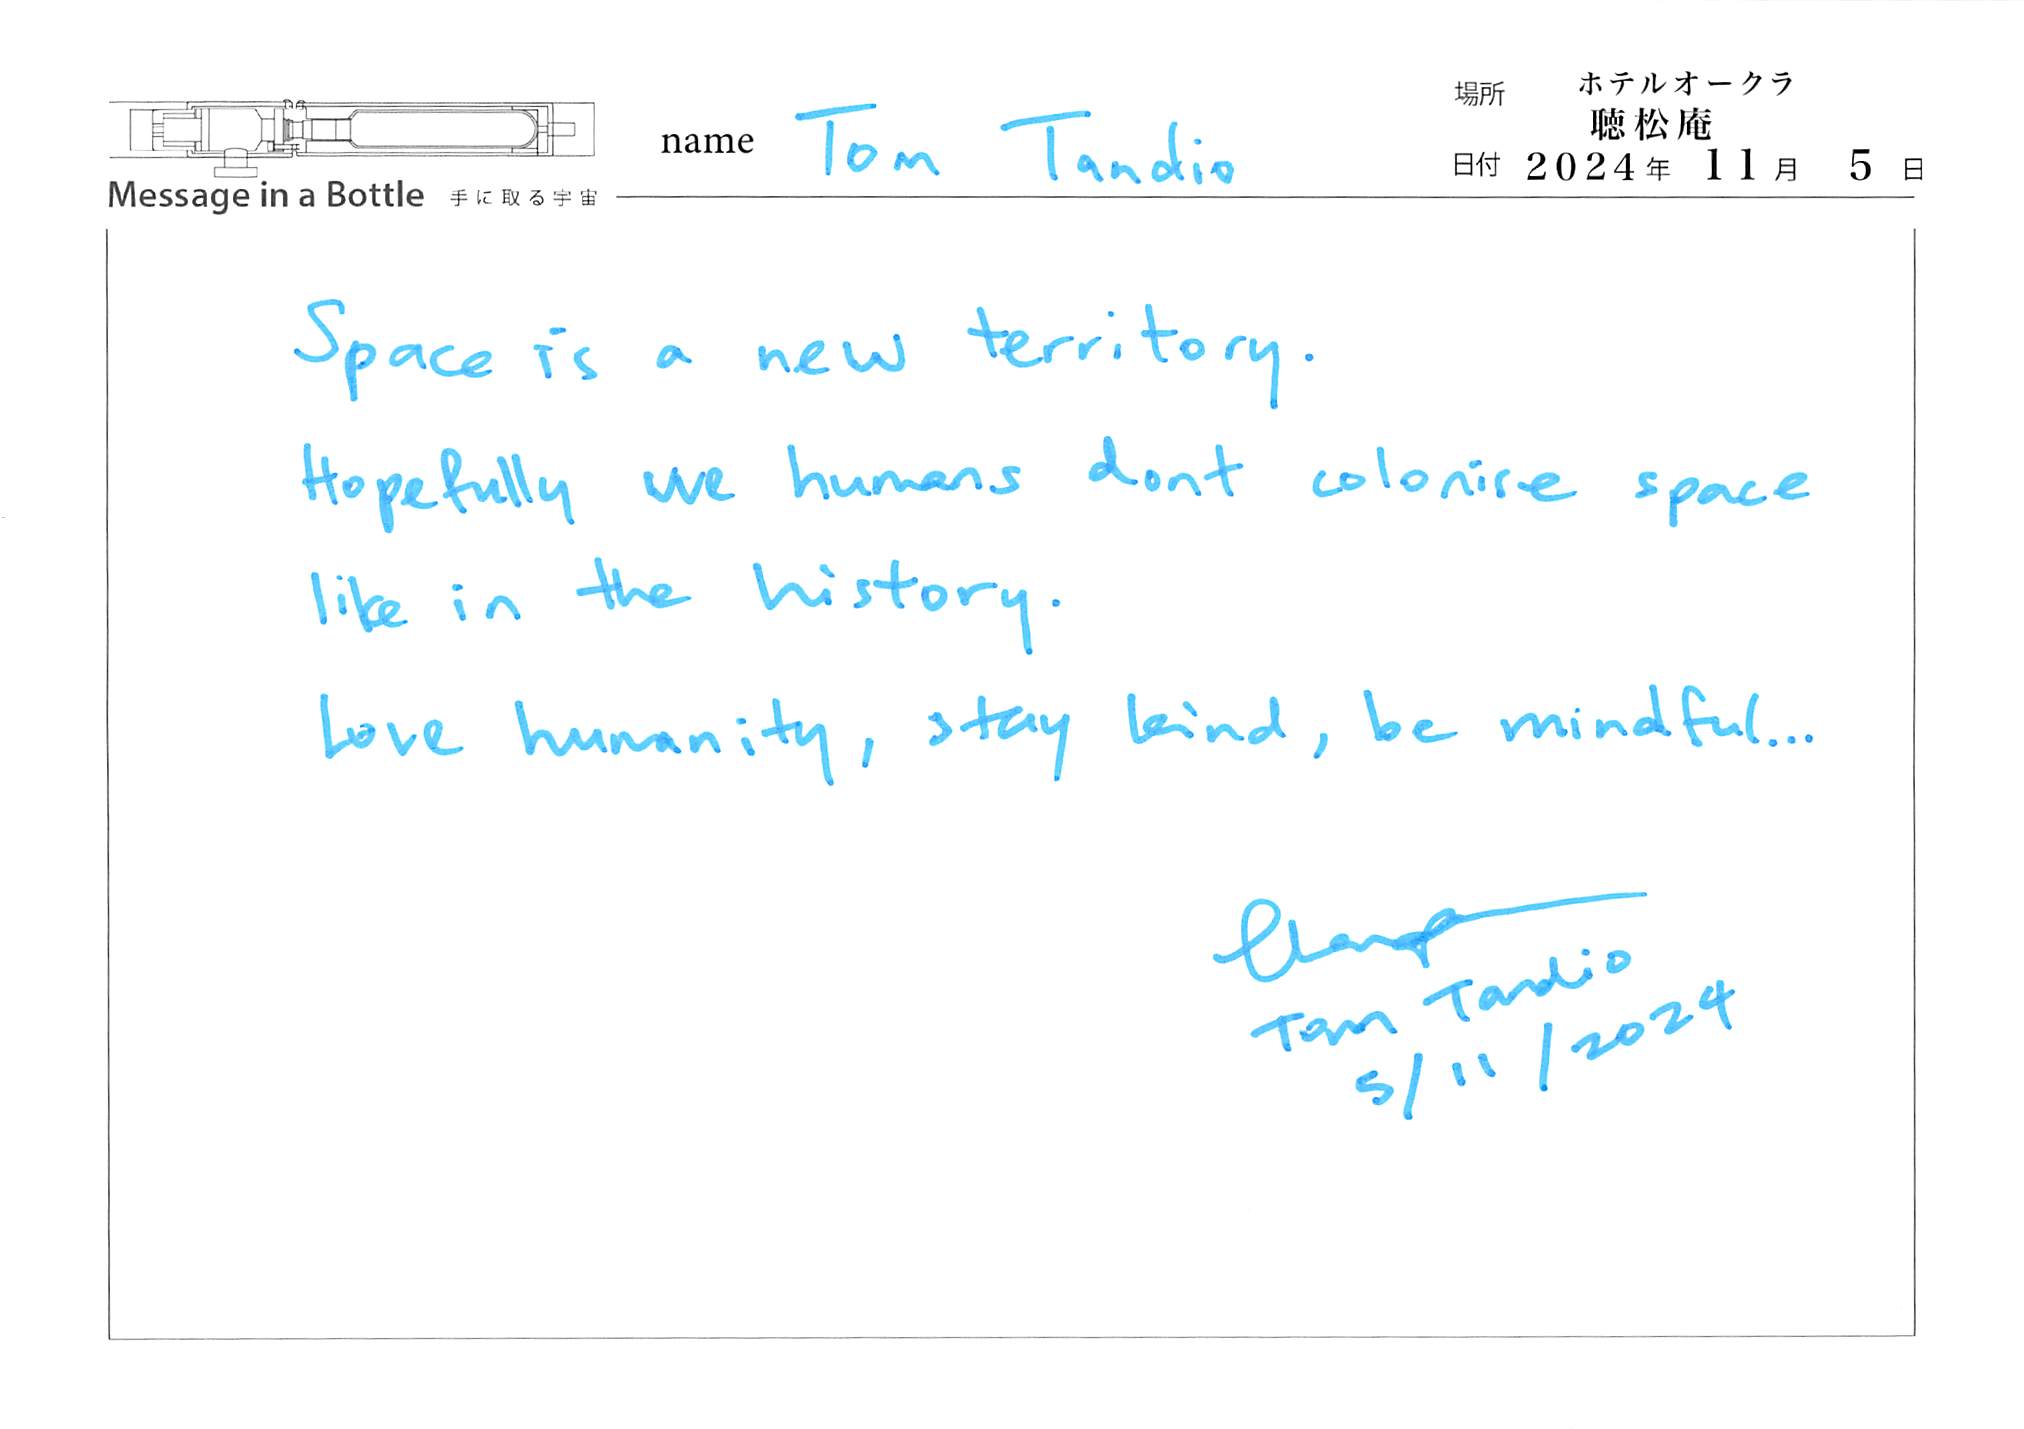 Message in a Bottle 手に取る宇宙
name Tom Tandio
場所 ホテルオークラ
聴松庵
日付 2024年 11月 5日
Space is a new territory.
Hopefully we humans dont colonise space
like in the history.
Love humanity, stay kind, be mindful...
Tom Tandio
5/11/2024